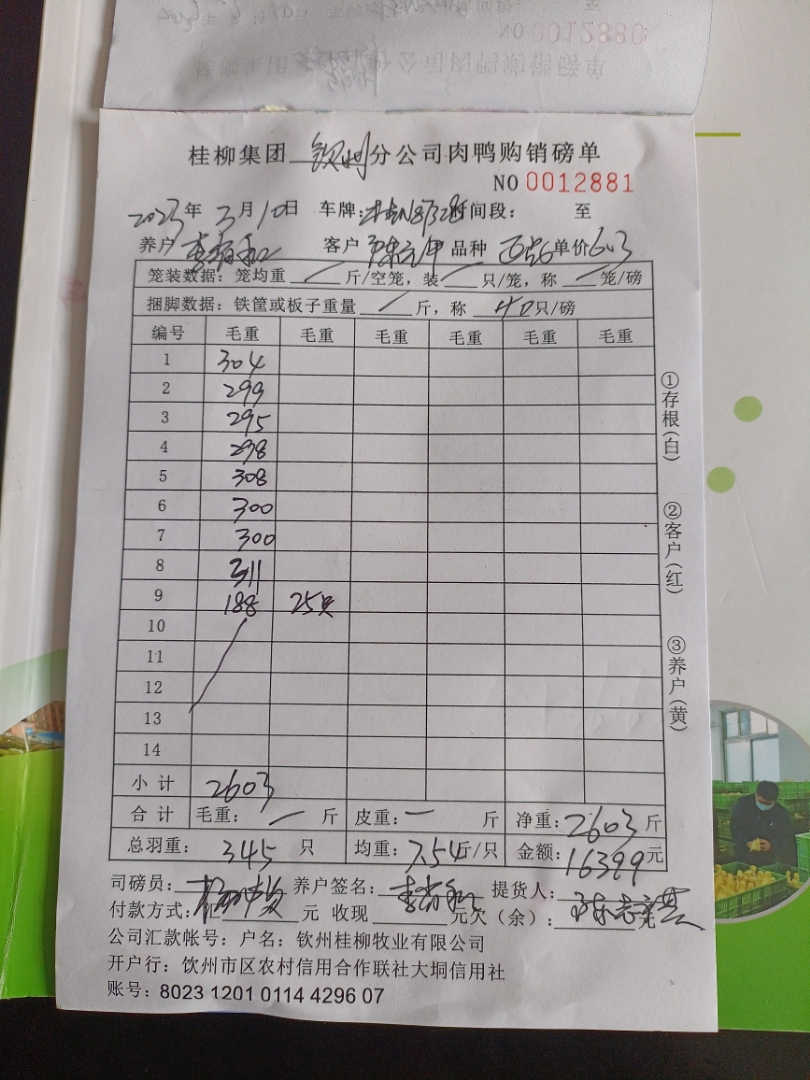 NO 0012880
桂柳集团钦州分公司肉鸭购销磅单
NO 0012881
2023年3月10日 车牌: 时间段: 至
养户 客户 品种 单价6.3
笼装数据: 笼均重 / 斤/空笼, 装 / 只/笼, 称 / 笼/磅
捆脚数据: 铁筐或板子重量 / 斤, 称 40只/磅
编号 毛重 毛重 毛重 毛重 毛重 毛重
1 304
2 299
3 295
4 298
5 308
6 300
7 300
8 311
9 188 25只
10
11
12
13
14
小计 2603
合计 毛重: 一 斤 皮重: 一 斤 净重: 2603斤
总羽重: 345 只 均重: 7.54斤/只 金额: 16399元
司磅员: 养户签名: 提货人:
付款方式: 元 收现 元欠(余): 元
公司汇款帐号: 户名: 钦州桂柳牧业有限公司
开户行: 钦州市区农村信用合作联社大垌信用社
账号: 8023 1201 0114 4296 07
①存根(白)
②客户(红)
③养户(黄)